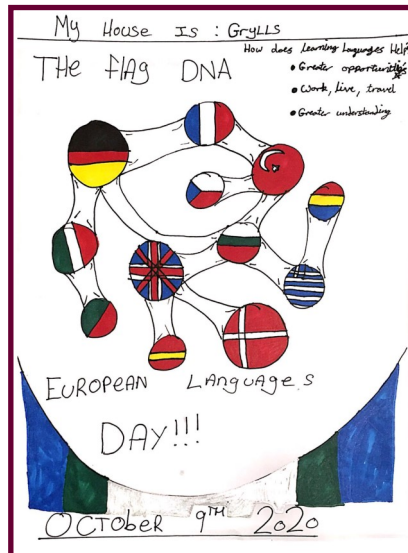 My House Is : Grylls
How does learning languages Help?
THE flAg DNA
• Greater opportunities
• Work, live, travel
• Greater understanding
EUROPEAN LANguAgES
DAY!!!
OCTOBER 9TH 2020